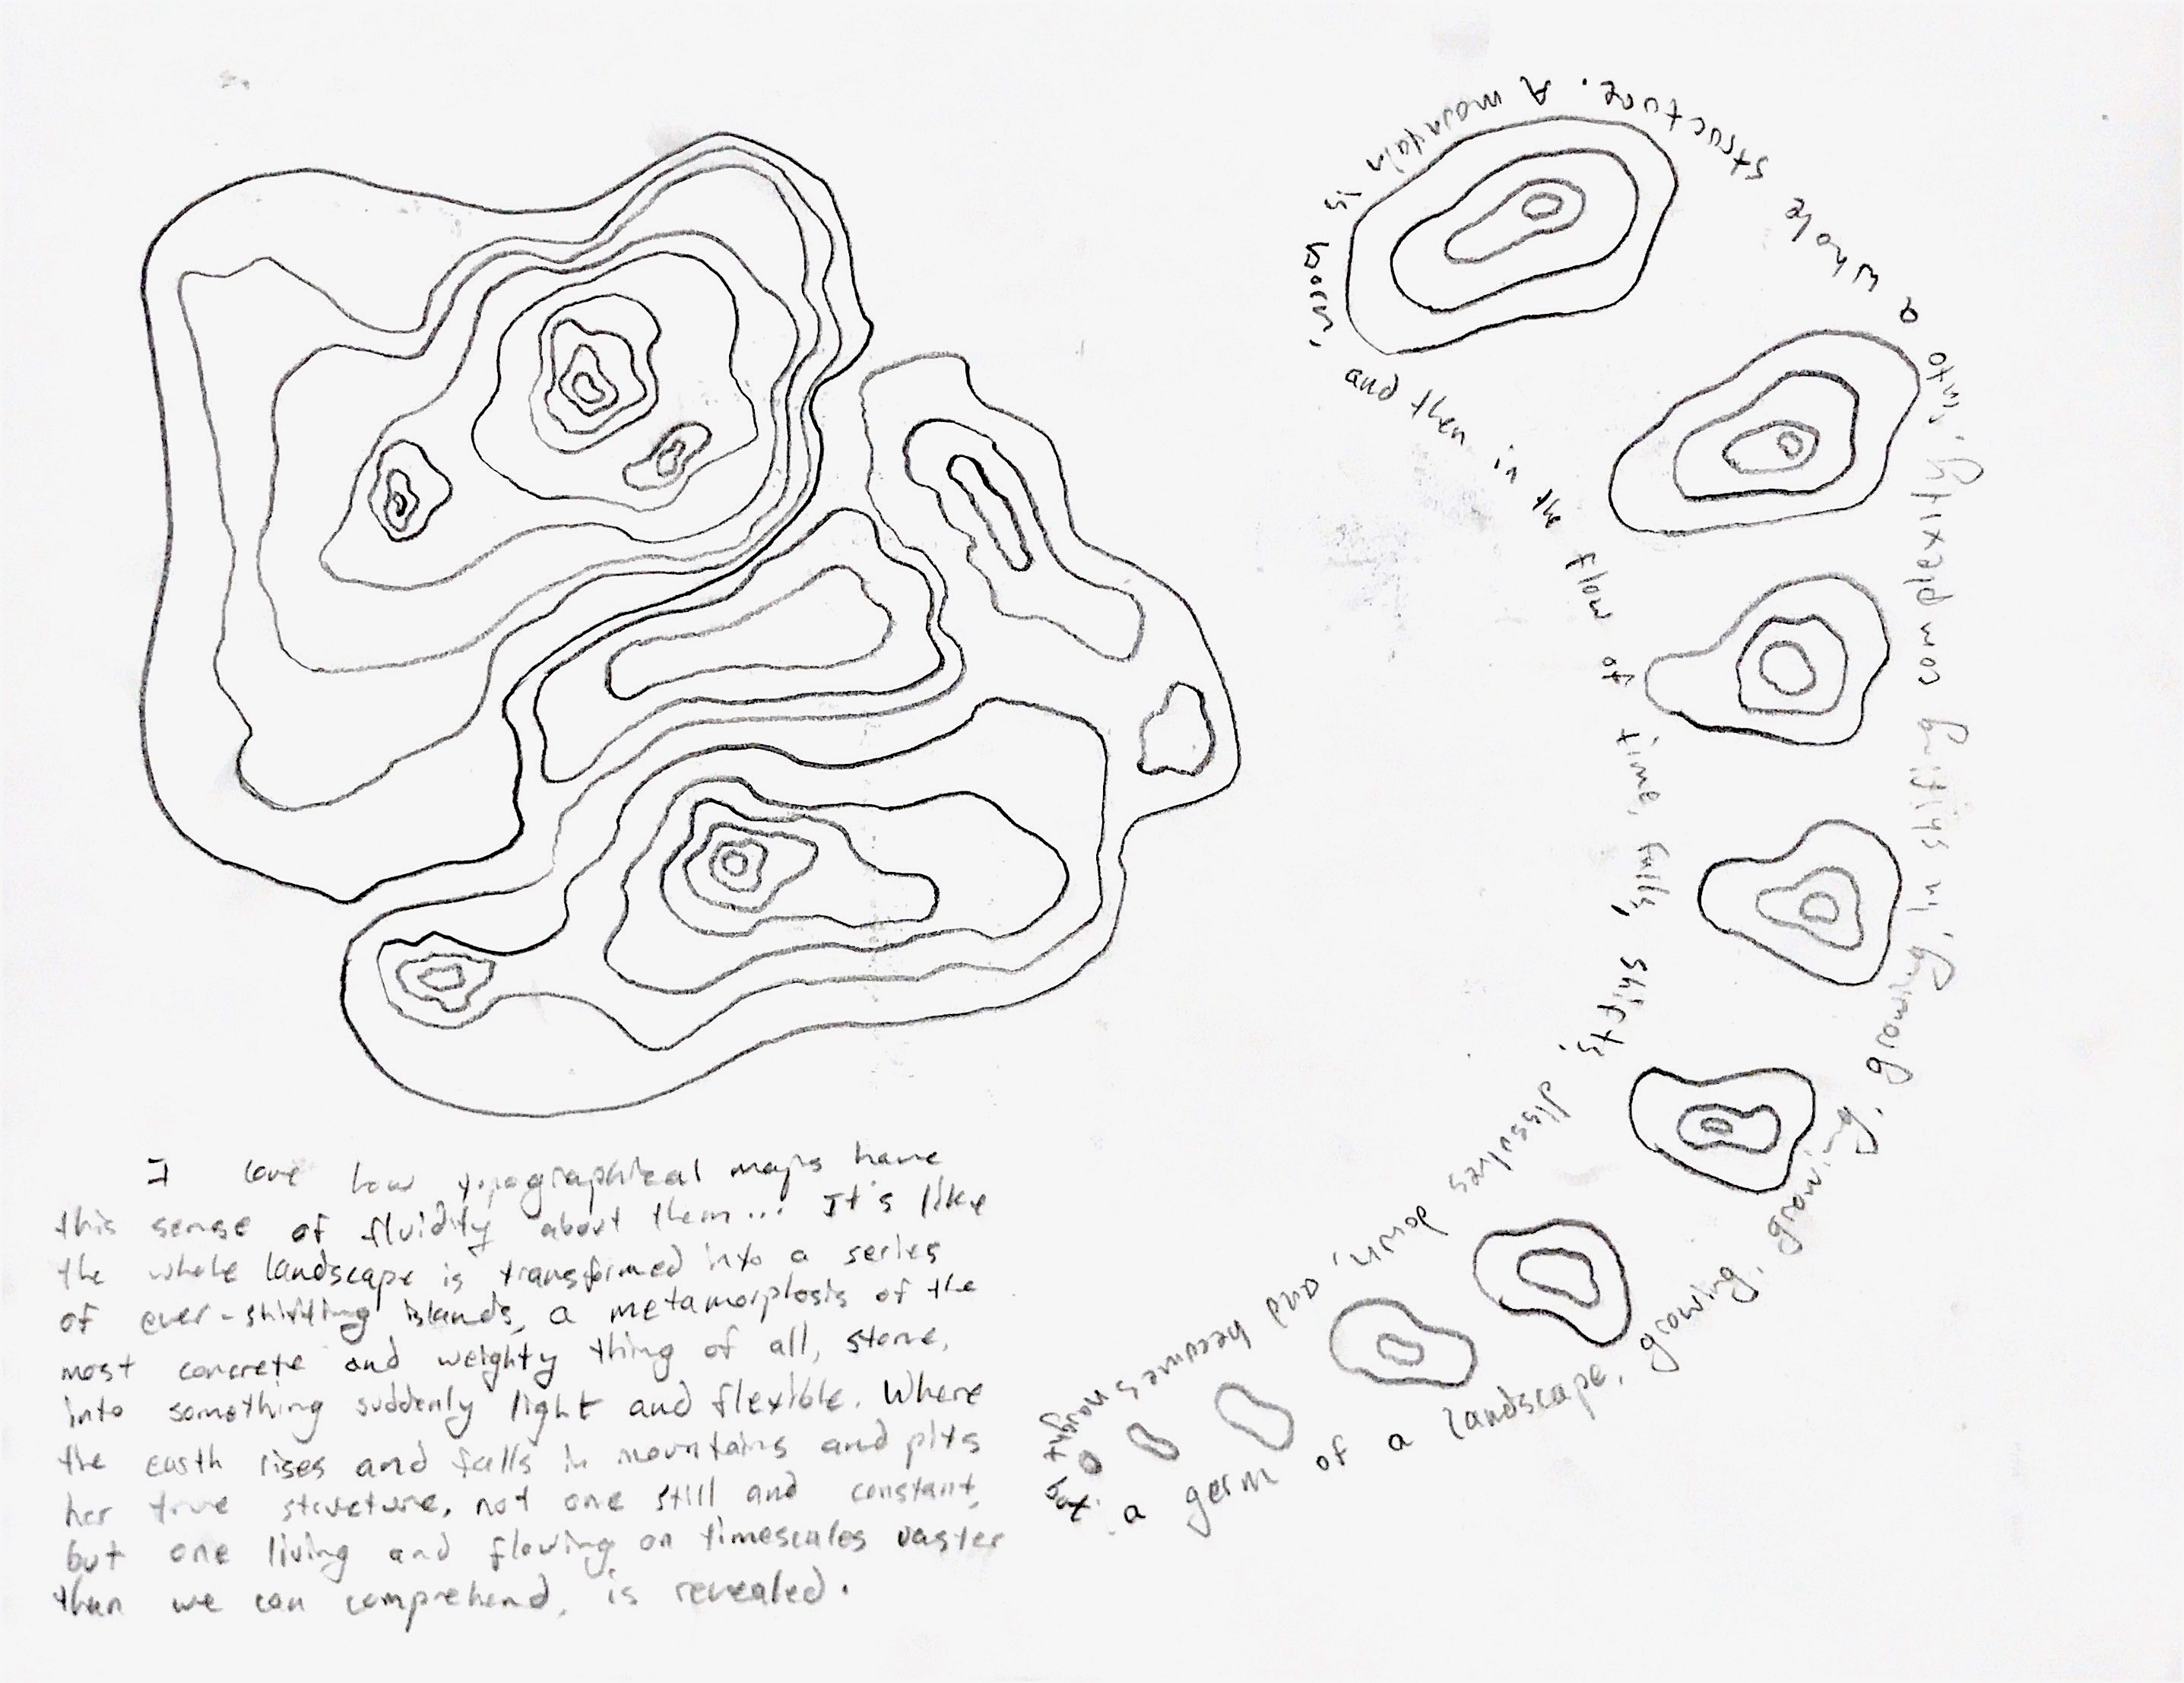 I love how topographical maps have
this sense of fluidity about them... It's like
the whole landscape is transformed into a series
of ever-shifting islands, a metamorphosis of the
most concrete and weighty thing of all, stone,
into something suddenly light and flexible. Where
the earth rises and falls in mountains and pits
her true structure, not one still and constant,
but one living and flowing on timescales vaster
than we can comprehend, is revealed.
a germ of a landscape, growing, growing, growing, in shifting complexity, into a whole structure. A mountain is born, and then in the flow of time, falls, shifts, dissolves down, and becomes naught but